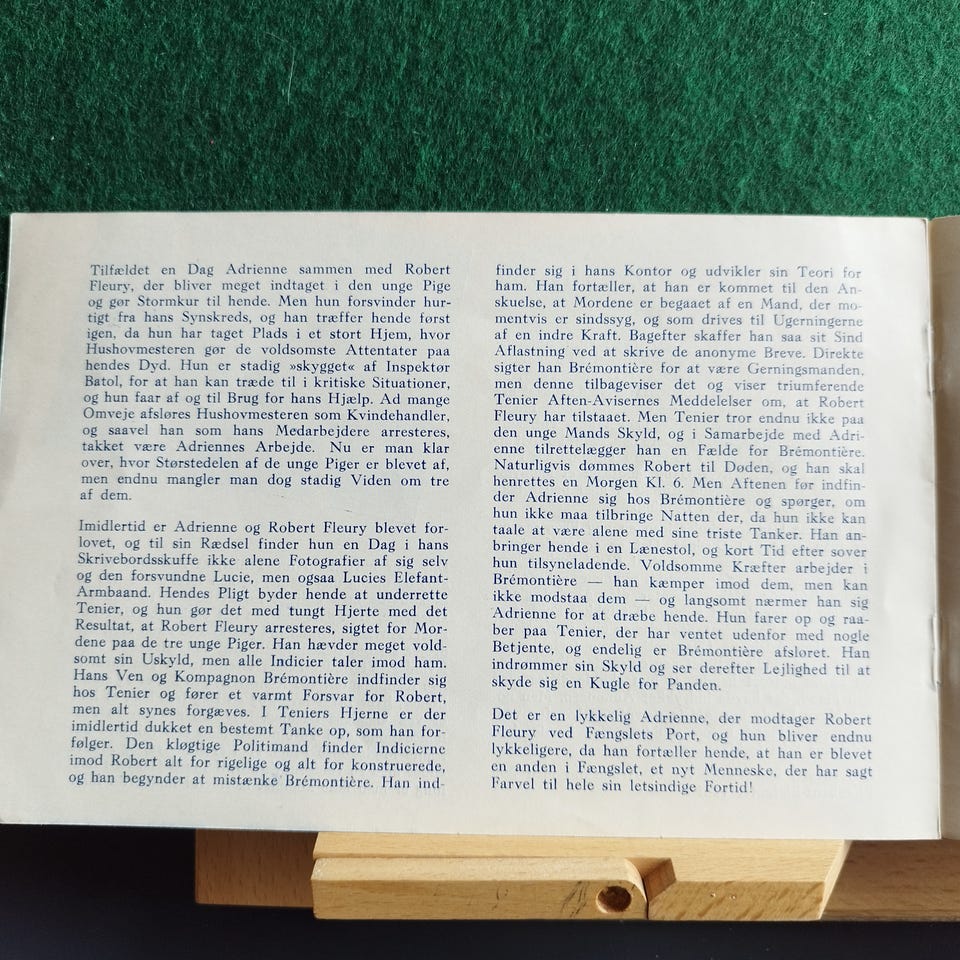 Tilfældet en Dag Adrienne sammen med Robert
Fleury, der bliver meget indtaget i den unge Pige
og gør Stormkur til hende. Men hun forsvinder hur-
tigt fra hans Synskreds, og han træffer hende først
igen, da hun har taget Plads i et stort Hjem, hvor
Hushovmesteren gør de voldsomste Attentater paa
hendes Dyd. Hun er stadig »skygget« af Inspektør
Batol, for at han kan træde til i kritiske Situationer,
og hun faar af og til Brug for hans Hjælp. Ad mange
Omveje afsløres Hushovmesteren som Kvindehandler,
og saavel han som hans Medarbejdere arresteres,
takket være Adriennes Arbejde. Nu er man klar
over, hvor Størstedelen af de unge Piger er blevet af,
men endnu mangler man dog stadig Viden om tre
af dem.
Imidlertid er Adrienne og Robert Fleury blevet for-
lovet, og til sin Rædsel finder hun en Dag i hans
Skrivebordsskuffe ikke alene Fotografier af sig selv
og den forsvundne Lucie, men ogsaa Lucies Elefant-
Armbaand. Hendes Pligt byder hende at underrette
Tenier, og hun gør det med tungt Hjerte med det
Resultat, at Robert Fleury arresteres, sigtet for Mor-
dene paa de tre unge Piger. Han hævder meget vold-
somt sin Uskyld, men alle Indicier taler imod ham.
Hans Ven og Kompagnon Brémontière indfinder sig
hos Tenier og fører et varmt Forsvar for Robert,
men alt synes forgæves. I Teniers Hjerne er der
imidlertid dukket en bestemt Tanke op, som han for-
følger. Den kløgtige Politimand finder Indicierne
imod Robert alt for rigelige og alt for konstruerede,
og han begynder at mistænke Brémontière. Han ind-
finder sig i hans Kontor og udvikler sin Teori for
ham. Han fortæller, at han er kommet til den An-
skuelse, at Mordene er begaaet af en Mand, der mo-
mentvis er sindssyg, og som drives til Ugerningerne
af en indre Kraft. Bagefter skaffer han saa sit Sind
Aflastning ved at skrive de anonyme Breve. Direkte
sigter han Brémontière for at være Gerningsmanden,
men denne tilbageviser det og viser triumferende
Tenier Aften-Avisernes Meddelelser om, at Robert
Fleury har tilstaaet. Men Tenier tror endnu ikke paa
den unge Mands Skyld, og i Samarbejde med Adri-
enne tilrettelægger han en Fælde for Brémontière.
Naturligvis dømmes Robert til Døden, og han skal
henrettes en Morgen Kl. 6. Men Aftenen før indfin-
der Adrienne sig hos Brémontière og spørger, om
hun ikke maa tilbringe Natten der, da hun ikke kan
taale at være alene med sine triste Tanker. Han an-
bringer hende i en Lænestol, og kort Tid efter sover
hun tilsyneladende. Voldsomme Kræfter arbejder i
Brémontière — han kæmper imod dem, men kan
ikke modstaa dem — og langsomt nærmer han sig
Adrienne for at dræbe hende. Hun farer op og raa-
ber paa Tenier, der har ventet udenfor med nogle
Betjente, og endelig er Brémontière afsløret. Han
indrømmer sin Skyld og ser derefter Lejlighed til at
skyde sig en Kugle for Panden.
Det er en lykkelig Adrienne, der modtager Robert
Fleury ved Fængslets Port, og hun bliver endnu
lykkeligere, da han fortæller hende, at han er blevet
en anden i Fængslet, et nyt Menneske, der har sagt
Farvel til hele sin letsindige Fortid!